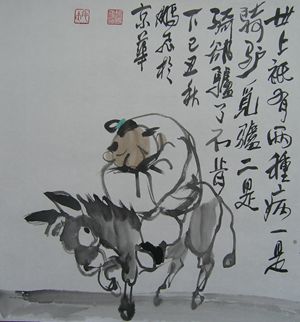 世上祇有两種病一是
骑驴覓驢二是
骑卻驢了不肯
下己丑秋
鵬飛於
京華